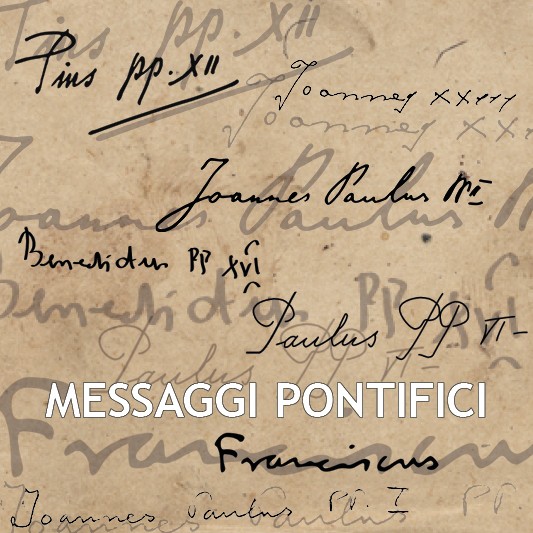 Pius pp. XII
Joannes XXIII
Joannes Paulus PP. II
Benedictus PP XVI
Paulus PP VI
MESSAGGI PONTIFICI
Franciscus
Joannes Paulus PP. I